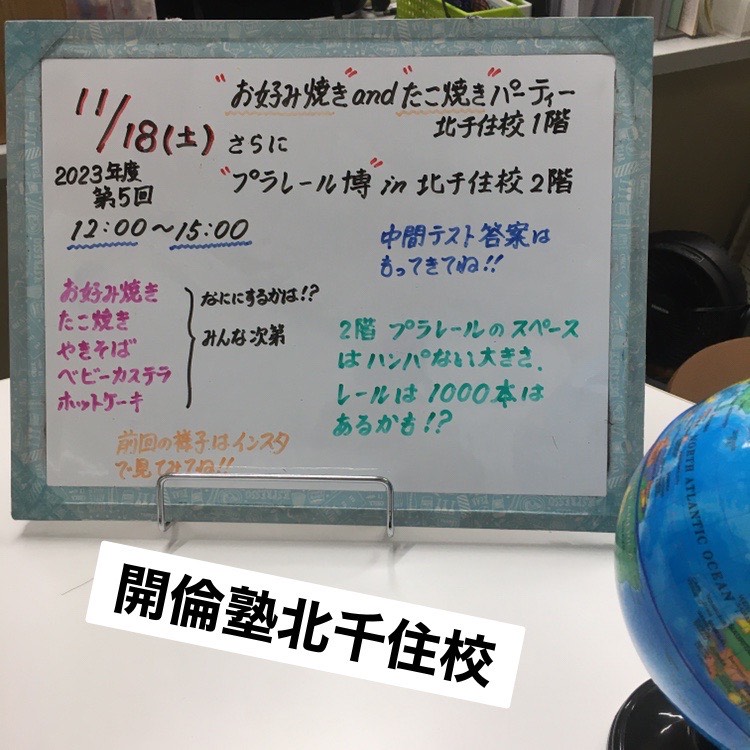 11/18(土) さらに
2023年度
第5回
12:00〜15:00
"お好み焼き"and"たこ焼き"パーティー
北千住校1階
"プラレール博"in 北千住校2階
中間テスト答案は
もってきてね!!
お好み焼き
たこ焼き
やきそば
ベビーカステラ
ホットケーキ
なににするかは!?
みんな次第
2階 プラレールのスペース
はハンパない大きさ、
レールは1000本は
あるかも!?
前回の様子はインスタ
で見てみてね!!
開倫塾北千住校
NORTH ATLANTIC OCEAN